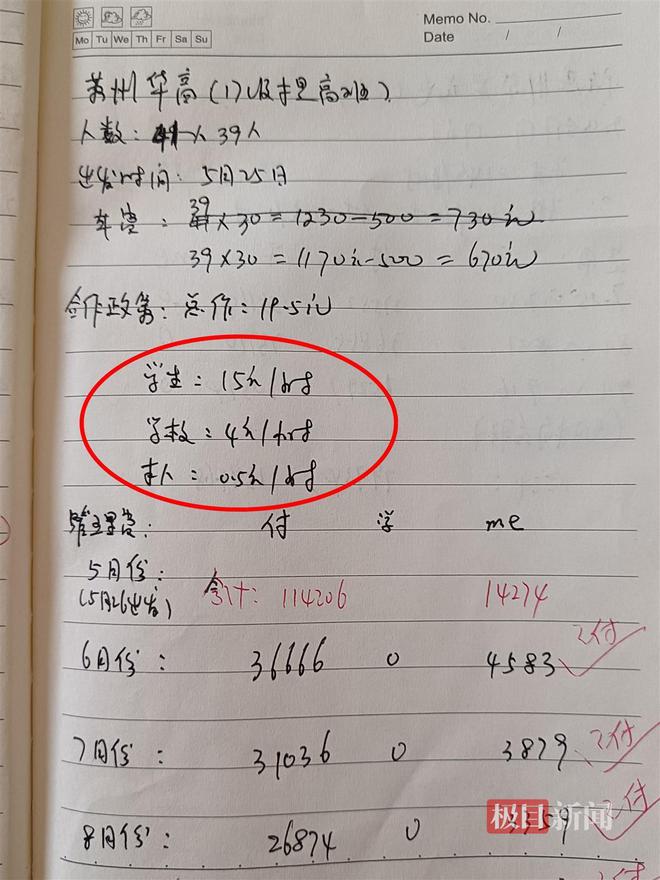 Memo No.
Mo Tu We Th Fr Sa Su
Date / /
苏州华高(17级提高班)
人数: 41人 39人
出发时间: 5月25日
车费: 41 39 ×30=1230-500=730元
39×30=1170元-500=670元
合作政策: 总价: 19.5元
学生: 15元/时
学校: 4元/时
本人: 0.5元/时
管理费: 付 学 me
5月份:
(5月26出发) 合计: 114206 14274
6月份: 36666 0 4583 已付
7月份: 31036 0 3879 已付
8月份: 26874 0 3359 已付
极目新闻